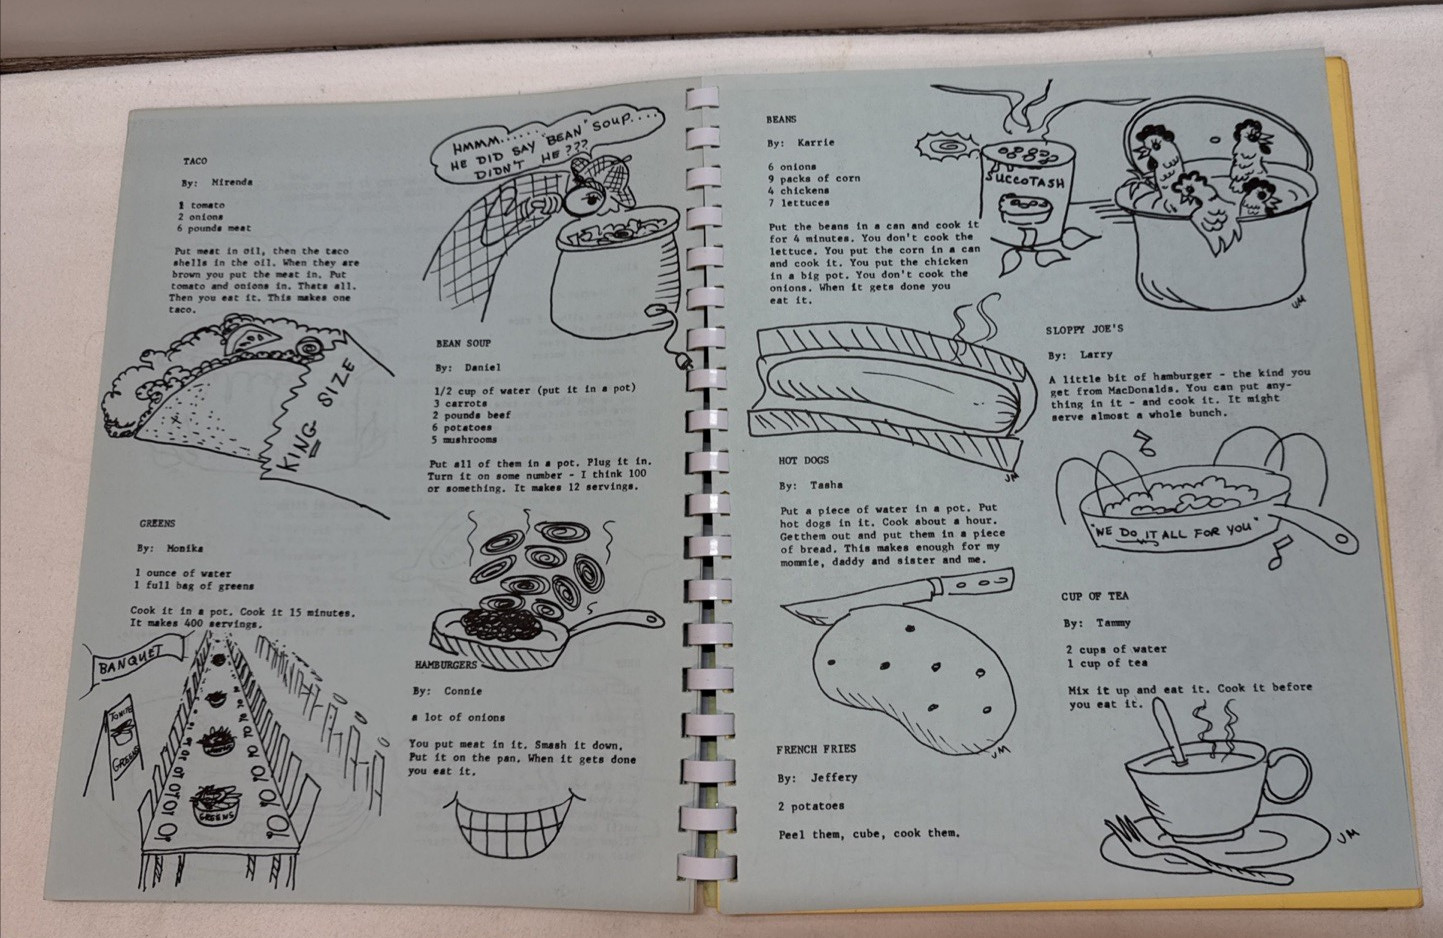 TACO
By: Mirenda
1 tomato
2 onions
6 pounds meat
Put meat in oil, then the taco
shells in the oil. When they are
brown you put the meat in. Put
tomato and onions in. Thats all.
Then you eat it. This makes one
taco.
KING SIZE
GREENS
By: Monika
1 ounce of water
1 full bag of greens
Cook it in a pot. Cook it 15 minutes.
It makes 400 servings.
BANQUET
TONITE
GREENS
GREENS
HMMM...... "BEAN" SOUP....
HE DID SAY
DIDN'T HE???
BEAN SOUP
By: Daniel
1/2 cup of water (put it in a pot)
3 carrots
2 pounds beef
6 potatoes
5 mushrooms
Put all of them in a pot. Plug it in.
Turn it on some number - I think 100
or something. It makes 12 servings.
HAMBURGERS
By: Connie
a lot of onions
You put meat in it. Smash it down.
Put it on the pan. When it gets done
you eat it.
BEANS
By: Karrie
6 onions
9 packs of corn
4 chickens
7 lettuces
Put the beans in a can and cook it
for 4 minutes. You don't cook the
lettuce. You put the corn in a can
and cook it. You put the chicken
in a big pot. You don't cook the
onions. When it gets done you
eat it.
SUCCOTASH
JM
HOT DOGS
JM
By: Tasha
Put a piece of water in a pot. Put
hot dogs in it. Cook about a hour.
Getthem out and put them in a piece
of bread. This makes enough for my
mommie, daddy and sister and me.
JM
FRENCH FRIES
By: Jeffery
2 potatoes
Peel them, cube, cook them.
SLOPPY JOE'S
By: Larry
A little bit of hamburger - the kind you
get from MacDonalds. You can put any-
thing in it - and cook it. It might
serve almost a whole bunch.
"WE DO IT ALL FOR YOU"
CUP OF TEA
By: Tammy
2 cups of water
1 cup of tea
Mix it up and eat it. Cook it before
you eat it.
JM